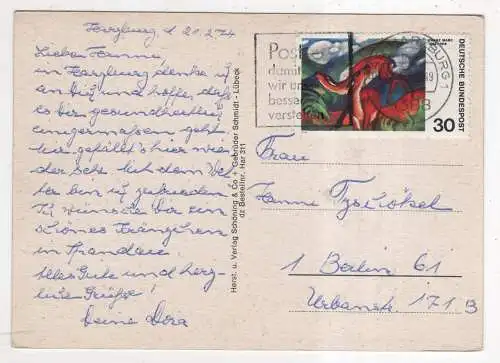 Harzburg, d 21.2.74
Liebe Hanne,
in Harzburg denke ich
an Dich und hoffe, daß
es Dir gesundheitlich
einigermaßen geht.
Mir gefällt's hier wie-
der sehr. Mit dem Wet-
ter bin ich zufrieden.
Ich wünsche Dir ein
schönes Kränzchen
in Spandau.
Alles Gute und herz-
liche Grüße!
Deine Dora
Herst. u. Verlag Schöning & Co + Gebrüder Schmidt - Lübeck
dz Bestellnr. Har 311
Post
damit
wir un
besse
verstehen
BURG 1
FRANZ MARC
DEUTSCHE BUNDESPOST
30
Frau
Hanne
1 Berlin 61
Urbanstr. 171 B